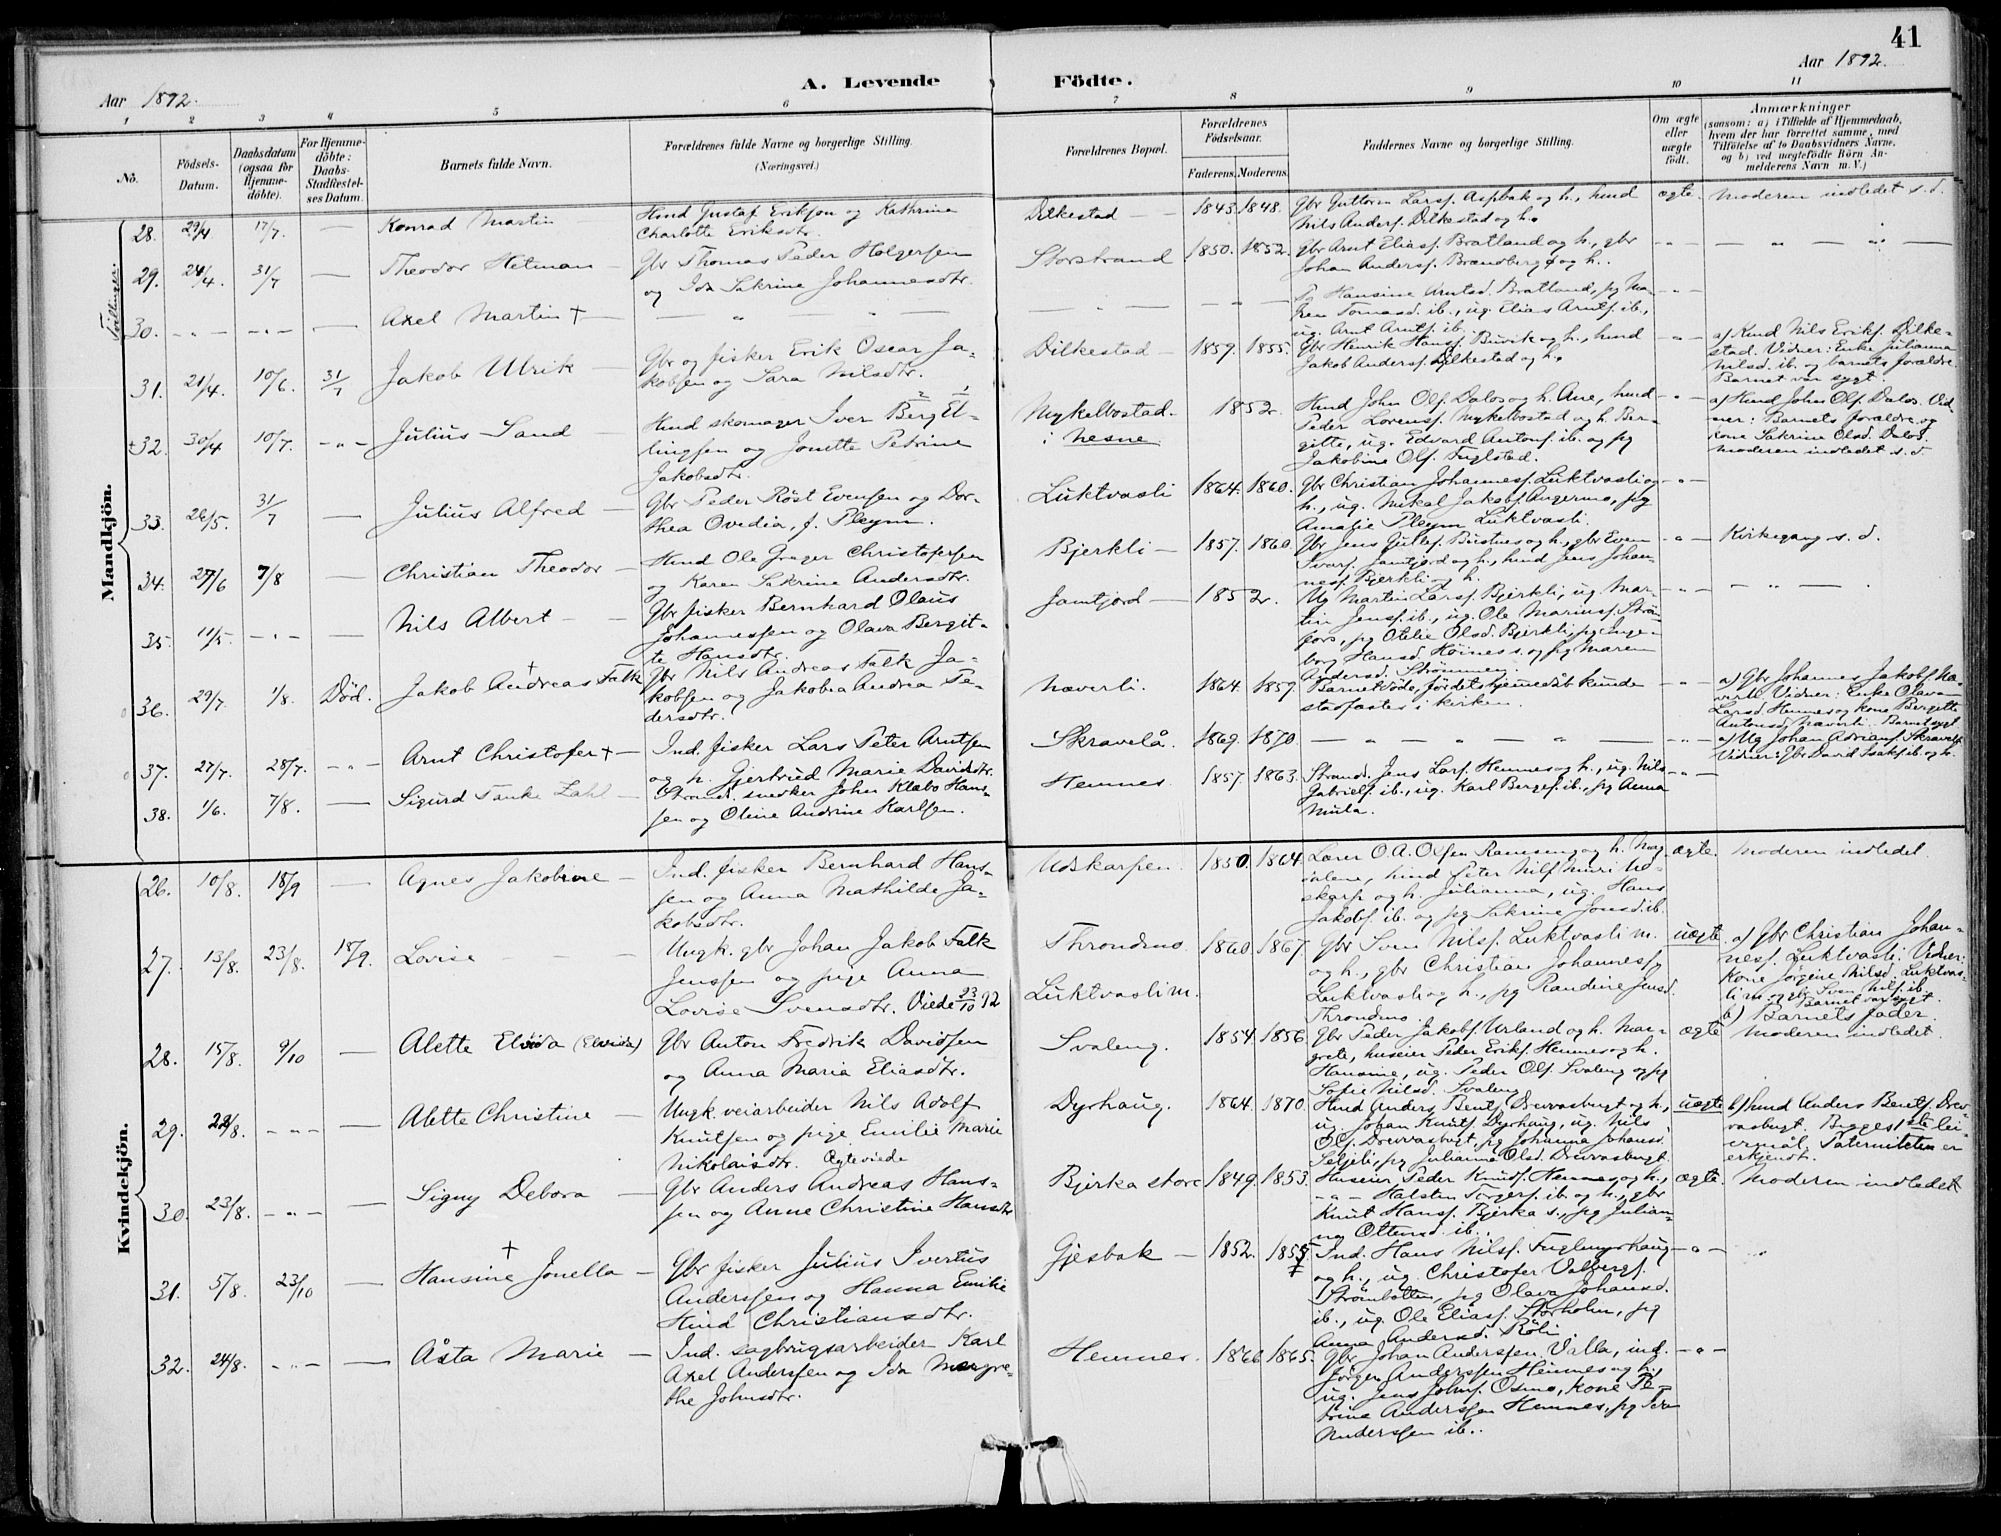 41
Aar 1892.
A. Levende Födte.
Aar 1892.
1 2 3 4 5 6 7 8 9 10 11
No.
Födsels-Datum.
Daabsdatum (ogsaa for Hjemme-döbte).
For Hjemme-döbte: Daabs-Stadfæstel-ses Datum.
Barnets fulde Navn.
Forældrenes fulde Navne og borgerlige Stilling. (Næringsvei.)
Forældrenes Bopæl.
Forældrenes Födselsaar.
Faderens. Moderens.
Faddernes Navne og borgerlige Stilling.
Om ægte eller uægte födt.
Anmærkninger
(saasom: a) i Tilfælde af Hjemmedaab,
hvem der har forrettet samme, med
Tilföielse af to Daabsvidners Navne,
og b) ved uægtefödte Börn An-
melderens Navn m. V.)
Mandkjön.
Tvillinger.
28. 29/4 17/7. — Konrad Martin
Hmd Gustaf Eriksen og Kathrina
Charlotte Eriksdtr.
Dilkestad — 1843. 1848.
Gbr Guttorm Larsf. Aspbak og h., hmd
Nils Andersf. Dilkestad og h.
ægte. Moderen indledet s. d.
29. 24/4. 31/7 — Theodor Hetman —
Gbr Thomas Peder Holgersen
og Ida Sakrine Johannesdtr.
Storstrand 1850. 1852.
Gbr Arnt Eliasf. Bratland og h., gbr
Johan Andersf. Brændberg og h.
-"- — " — " —
30. -"- -"- — Axel Martin † —
— " — " —
Pg Hansine Arntsd. Bratland, pg Ma-
ren Tomasd. ib., ug. Elias Arntf. ib.,
ug. Arnt Arntf. ib.
-"-
31. 21/4 10/6. 31/7 Jakob Ulrik —
Gbr og fisker Erik Oscar Ja-
kobsen og Sara Nilsdtr.
Dilkestad — 1859. 1855.
Gbr Henrik Hansf. Busvik og h., hmd
Jakob Andersf. Dilkestad og h.
-"-
a) Kmd Nils Erikf. Dilke-
stad. Vidner: Enke Julianna
Nilsd. ib. og barnets forældre.
Barnet var sygt.
32. 30/4 10/7. -"- Julius Sand —
Hmd skomager Iver Berg El-
lingsen og Jonette Petrine
Jakobsdtr.
Mykelbostad
i Nesne
1852.
Hmd John Olf. Dalos og h. Ane, hmd
Peder Lorensf. Mykelbostad og h. Ber-
gitte, ug. Edvard Antonf. ib. og pg
Jakobine Olf. Fuglstad.
-"-
a) Hmd John Olf. Dalos. Vid-
ner: Barnets forældre og
kone Sakrine Olsd. Dalos.
Moderen indledet s. d
33. 26/5. 31/7 — Julius Alfred —
Gbr Peder Röst Evensen og Dor-
thea Ovedia, f. Pleym.
Luktvasli 1864. 1860.
Gbr Christian Johannesf. Luktvasli og
h., ug. Mikal Jakobf. Angermo, pg
Amalie Pleym Luktvasli.
-"-
34. 27/6 7/8 — Christian Theodor —
Hmd Ole Greger Christofersen
og Karen Sakrine Andersdtr.
Bjerkli — 1857. 1860.
Gbr Jens Gullef. Bustnes og h., gbr Even
Ivarf. Jamtjord og h., hmd Jens Johan-
nesf. Bjerkli og h.
-"- Kirkegang s. d.
35. 11/5. -"- — Nils Albert —
Gbr fisker Bernhard Olaus
Johannessen og Olava Bergit-
te Hansdtr.
Jamtjord — 1852.
Ug Martin Larsf. Bjerkli, ug. Mar-
tin Jensf. ib., ug. Ole Mariusf. Ström-
fors, pg Otelie Olsd. Bjerkli, pg Inge-
borg Hansd. Höines s. og pg Maren
Andersd. Strömmen.
-"- — " —
36. 29/7. 1/8. Död. Jakob Andreas Falk †
Gbr Nils Andreas Falk Ja-
kobsen og Jakobea Andrea Pe-
dersdtr.
Næverli. 1864. 1859.
Barnet döde, för dets hjemmedåb kunde
stadfæstes i kirken.
-"-
a) Gbr Johannes Jakobf. Næ-
verli. Vidner: Enke Olava
Larsd. Hemnes og kone Bergitte
Antonsd. Næverli. Barnet sygt.
37. 27/7. 28/7. -"- Arnt Christofer † —
Ind. fisker Lars Peter Arntsen
og h. Gjertrud Marie Davidsdtr.
Skravelå. 1869. 1870
— " — " — " —
-"-
a) Ug Johan Adrianf. Skravelå.
Vidner: Gbr David Isakf. ib. og h.
38. 1/6. 7/8. — Sigurd Tanke Zahl —
Strands. snedker Johan Klabo Han-
sen og Oline Andrine Karlsen.
Hemnes. 1857. 1863.
Strands. Jens Larf. Hemnes og h., ug. Nils
Gabrielf. ib., ug. Karl Bergef. ib., pg Anna
Mula.
-"-
Kvindekjön.
26. 10/8. 18/9 — Agnes Jakobine —
Ind. fisker Bernhard Han-
sen og Anna Mathilde Ja-
kobsdtr.
Udskarpen. 1850. 1864.
Lærer O. A. Olsen Ramseng og h. Mag-
dalene, hmd Peter Nilf. Ud-
skarp. og h. Julianna, ug. Hans
Jakobf. ib. og pg Sakrine Jonsd. ib.
ægte. Moderen indledet.
27. 13/8. 23/8. 18/9. Lovise — — —
Ungk. gbr Johan Jakob Falk
Jenssen og pige Anna
Lovise Svensdtr. Viede 23/10 92
Throndmo.
Luktvasli m.
1860. 1867.
Gbr Sven Nilsf. Luktvasli m.
og h., gbr Christian Johannesf.
Luktvasli og h., pg Randine Jensd.
Throndmo.
uægte
a) Gbr Christian Johan-
nesf. Luktvasli. Vidner:
Kone Jörgine Nilsd. Luktvas-
li m. og gbr Sven Nilf. ib.
Barnet var sygt.
b) Barnets fader.
28. 15/8. 9/10 — Alette Elvida (Elvida)
Gbr Anton Fredrik Davidsen
og Anna Maria Eliasdtr.
Svaleng. 1854. 1856.
Gbr Peder Jakobf. Urland og h. Mar-
grete, huseier Peder Erikf. Hemnes og h.
Hansine, ug. Peder Olf. Svaleng og pg
Sofie Nilsd. Svaleng.
ægte Moderen indledet.
29. 22/8. -"- — Alette Christine —
Ungk. veiarbeider Nils Adolf
Knutsen og pige Emilie Marie
Nikolaisdtr. Ægteviede
Dyrhaug. 1864. 1870.
Hmd Anders Bentf. Drevvasbugt og h.,
ug. Johan Knutf. Dyrhaug, ug. Nils
Olf. Drevvasbugt, pg Johanna Johansd.
Seljeli, pg Julianna Olsd. Drevvasbugt.
uægte
b) Hmd Anders Bentf. Drev-
vasbugt. Begges 1ste lei-
ermål. Paterniteten er
erkjendt.
30. 23/8. -"- — Signy Debora —
Gbr Anders Andreas Han-
sen og Anne Christine Hansdtr
Bjerka store 1849. 1853.
Huseier Peder Knudf. Hemnes og h.,
-"- Halsten Torgerf. ib. og h., gbr
Knut Hansf. Bjerka s., pg Julian-
na Ottensd. ib.
ægte. Moderen indledet
31. 5/8. 23/10 — Hansine Jonella † —
Gbr fisker Julius Ivertus
Anderssen og Hanna Emilie
Hmd Christiansdtr.
Gjesbak — 1852. 1857
Ind. Hans Nilsf. Fuglmyrhaug
og h., ug. Christofer Valbergf.
Strömbotten, pg Olava Johansd.
ib., ug. Ole Eliasf. Storholm, pg
Anna Andersd. Röli
-"- "
32. 24/8. -"- — Åsta Marie —
Ind. sagbrugsarbeider Karl
Axel Anderssen og Ida Margre-
the Johnsdtr.
Hemnes. 1866 1865.
Gbr Johan Anderssen Valla, ind.
Jörgen Anderssen Hemnes og h.,
ug. Jens Johnf. Osmo, kone Pe-
trine Anderssen Hemnes, pg Petra
Anderssen ib.
-"-